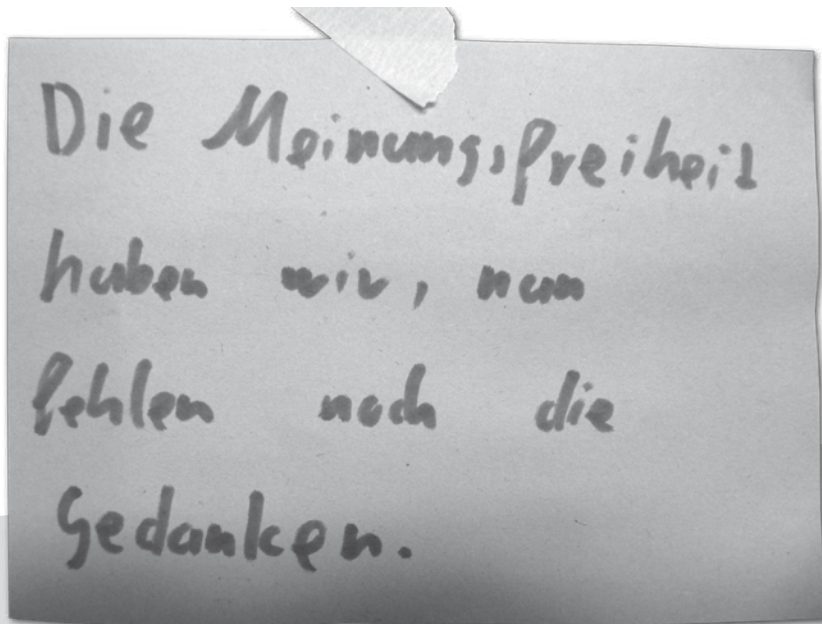 Die Meinungsfreiheit
haben wir, nun
fehlen noch die
Gedanken.